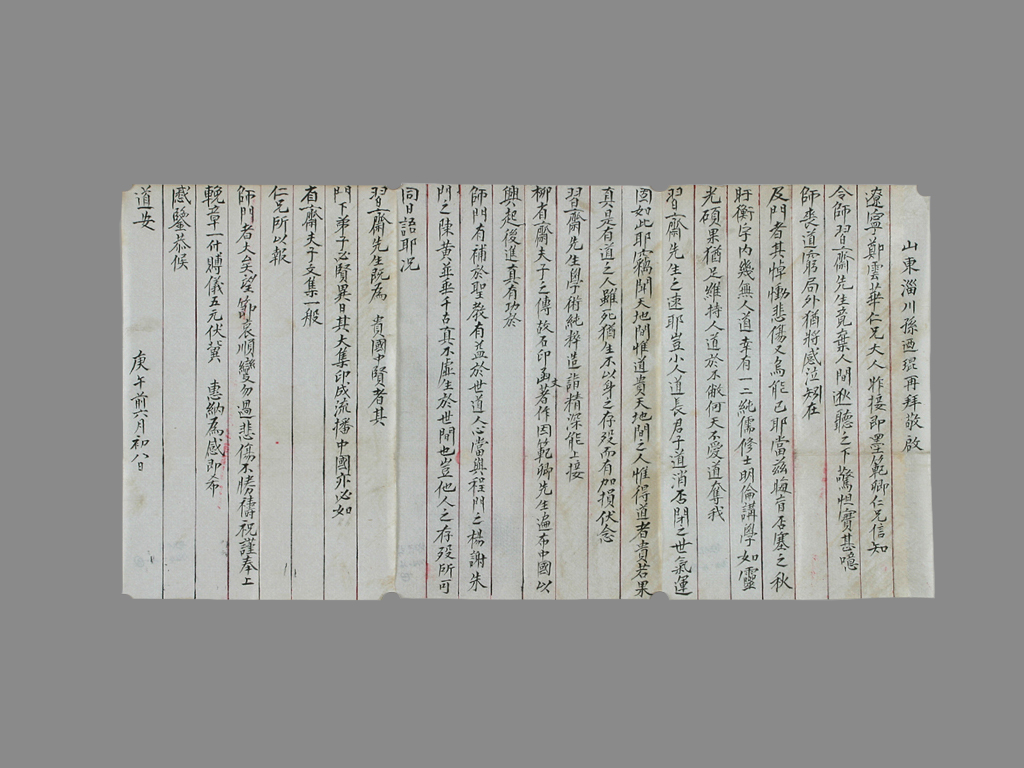 山東淄川孫迺琨再拜敬啟
遼寧鄭雲華仁兄大人昨接即墨範卿仁兄信知
令師習齋先生竟棄人間遜聽之下驚怛實甚噫
師喪道窮局外猶將感泣矧在
及門者其悼慟悲傷又烏能已耶當茲晦盲否塞之秋
盱衡宇內幾無人道幸有一二純儒修士明倫講學如靈
光碩果猶足維持人道於不敝何天不愛道奪我
習齋先生之速耶豈小人道長君子道消否閉之世氣運
固如此耶竊聞天地間惟道貴天地間之人惟得道者貴若果
真是有道之人雖死猶生不以身之存歿而有加損伏念
習齋先生學術純粹造詣精深能上接
柳省齋夫子之傳故石印函丈著作因範卿先生遍布中國以
興起後進真有功於
師門有補於聖教有益於世道人心當與程門之楊謝朱
門之陳黃並垂千古真不虛生於世間也豈他人之存歿所可
同日語耶況
習齋先生既為 貴國中賢者其
門下弟子必賢異日其大集印成流播中國亦必如
省齋夫子文集一般
仁兄所以報
師門者大矣望節哀順變勿過悲傷不勝禱祝謹奉上
輓章一付賻儀五元伏冀 惠納為感即希
感鑒恭候
道安
庚午前六月初八日